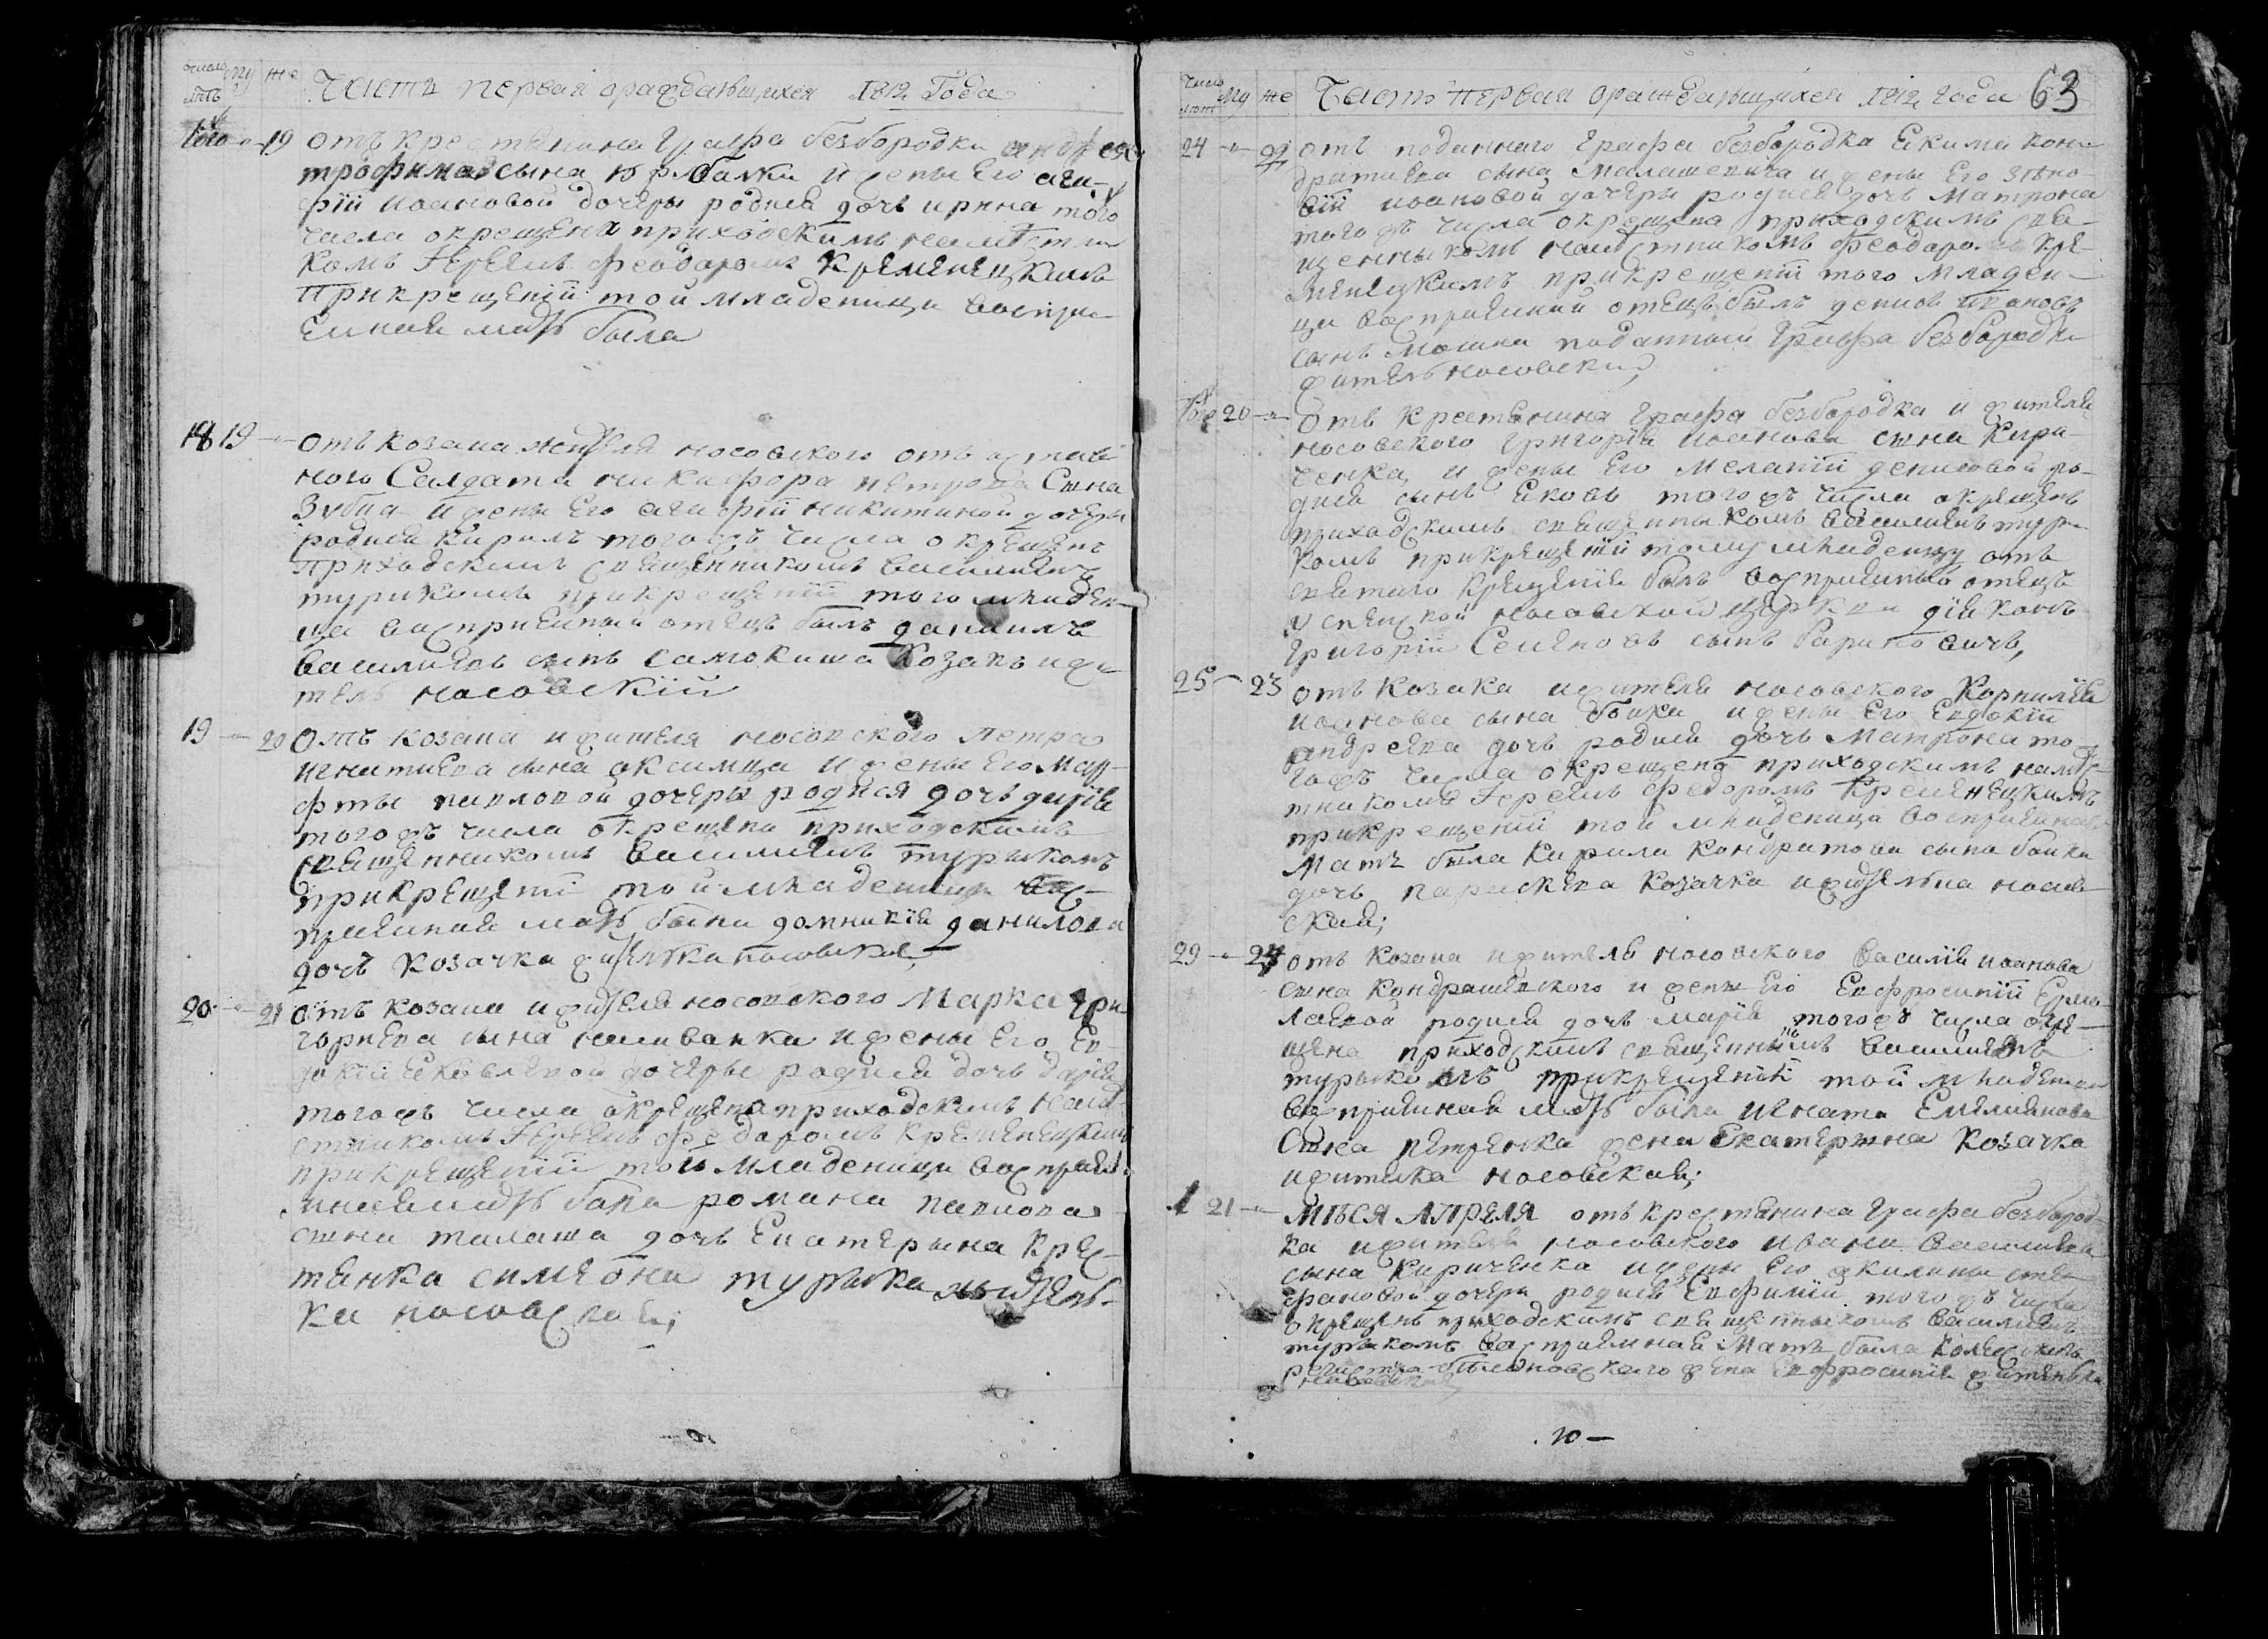 число му же Часть первая ораждающихся 1812 Года
лѣтъ
того 19 отъ крестянина Графа безбородки андрея
трофимова сына и жены его ага-
фіи иоановой дочеры родися дочь ирина того
числа окрещена приходскимъ намѣстни
комъ Іереемъ феодоромъ Кременецкимъ
При крещеніи той младеници воспри-
емная мать была
18 19 отъ козака жителя носовского отъ
ного Салдата никифора петрова Сына
Зубца и жены Его агафіи никитиной дочеры
родися Кирилъ тогожъ числа окрещенъ
приходскимъ священникомъ василиемъ
турикомъ при крещеніи того младен-
ца воспріемный отецъ былъ даниилъ
василиевъ сынъ самокиша козакъ и жи
тель носовскій
19 20 Отъ козака и жителя носовского петра
игнатиева сына аксимца и жены Его мар-
фты павловой дочеры родися дочь дарія
тогожъ числа окрещена приходскимъ
священникомъ василиемъ турикомъ
при крещеніи той младеницы вос-
приемная мать была домникія данилова
дочъ козачка жителка носовская,
20 21 отъ козака и жителя носовского Марка гри
гориева сына наливайка и жены Его Ев-
докіи Екавлевой дочеры родися дочь дарія
тогожъ числа окрещена приходскимъ намѣ
стникомъ Іереемъ феодоромъ Кременецкимъ
при крещеніи той младеници воспріем
ная мать была романа павлова
сына талаша дочь Екатерына крес-
тянка симеона турыка жытель-
ка носовская;
число му же Часть первая ораждающихся 1812 года 63
лѣтъ
24 22 отъ поданного Графа безбородка Екима кон
дратиева сына Малашевича и жены Его зѣно-
віи иоановой дочеры родися дочь Матрона
того жъ числа окрещена приходскимъ свя-
щенныкомъ намѣстникомъ феодоромъ кре-
менецкимъ при крещеніи того младен-
ца воспріемный отецъ былъ денисъ ивановъ
сынъ мошка поданный Графа безбородки
житель носовский,
того 20 отъ крестянина Графа безбородка и жителя
носовского Григорія иоанова сына Кири-
ченка, и жены Его меланіи денисовой ро-
дися сынъ Яковъ тогожъ числа окрещенъ
приходскимъ священныкомъ василиемъ тури
комъ при крещеніи тому младенцу отъ
святаго крещенія былъ воспріемный отецъ
успенской носовской церкви діяконъ
Григорій Семеновъ сынъ бариновичъ,
25 23 отъ козака и жителя носовского Корнилія
иоанова сына бойка и жены Его Евдокіи
андреева дочь родися дочь Матрона то
гожъ числа окрещена приходскимъ намѣс-
тникомъ Іереемъ Федоромъ Кременецкимъ
при крещеніи той младеница воспріемна
Мать была Кирила Кондратова сына бойка
дочь параскева козачка и жителька носов
ская;
29 24 отъ козака и жителя носовского василія иоанова
сына Кондрашевского и жены Его Евфросиніи Ермо
лаевой родися дочь марія тогожъ числа окре-
щена приходскимъ священныкомъ василиемъ
турыкомъ при крещеніи той младеници
воспріемная мать была игната Емилианова
Сына петренка жена Екатерина козачка
и жителка носовская;
1 21 мѣся Апреля отъ крестянина Графа безбород-
ка и жителя носовского ивана василиева
сына Кириченка и жены Его акилины сте
фановой дочеры родися Евфимій того жъ числа
окрещенъ приходскимъ священныкомъ василиемъ
турыкомъ воспріемная Мать была
жена Евфросинія жителька
носовская
.10 —